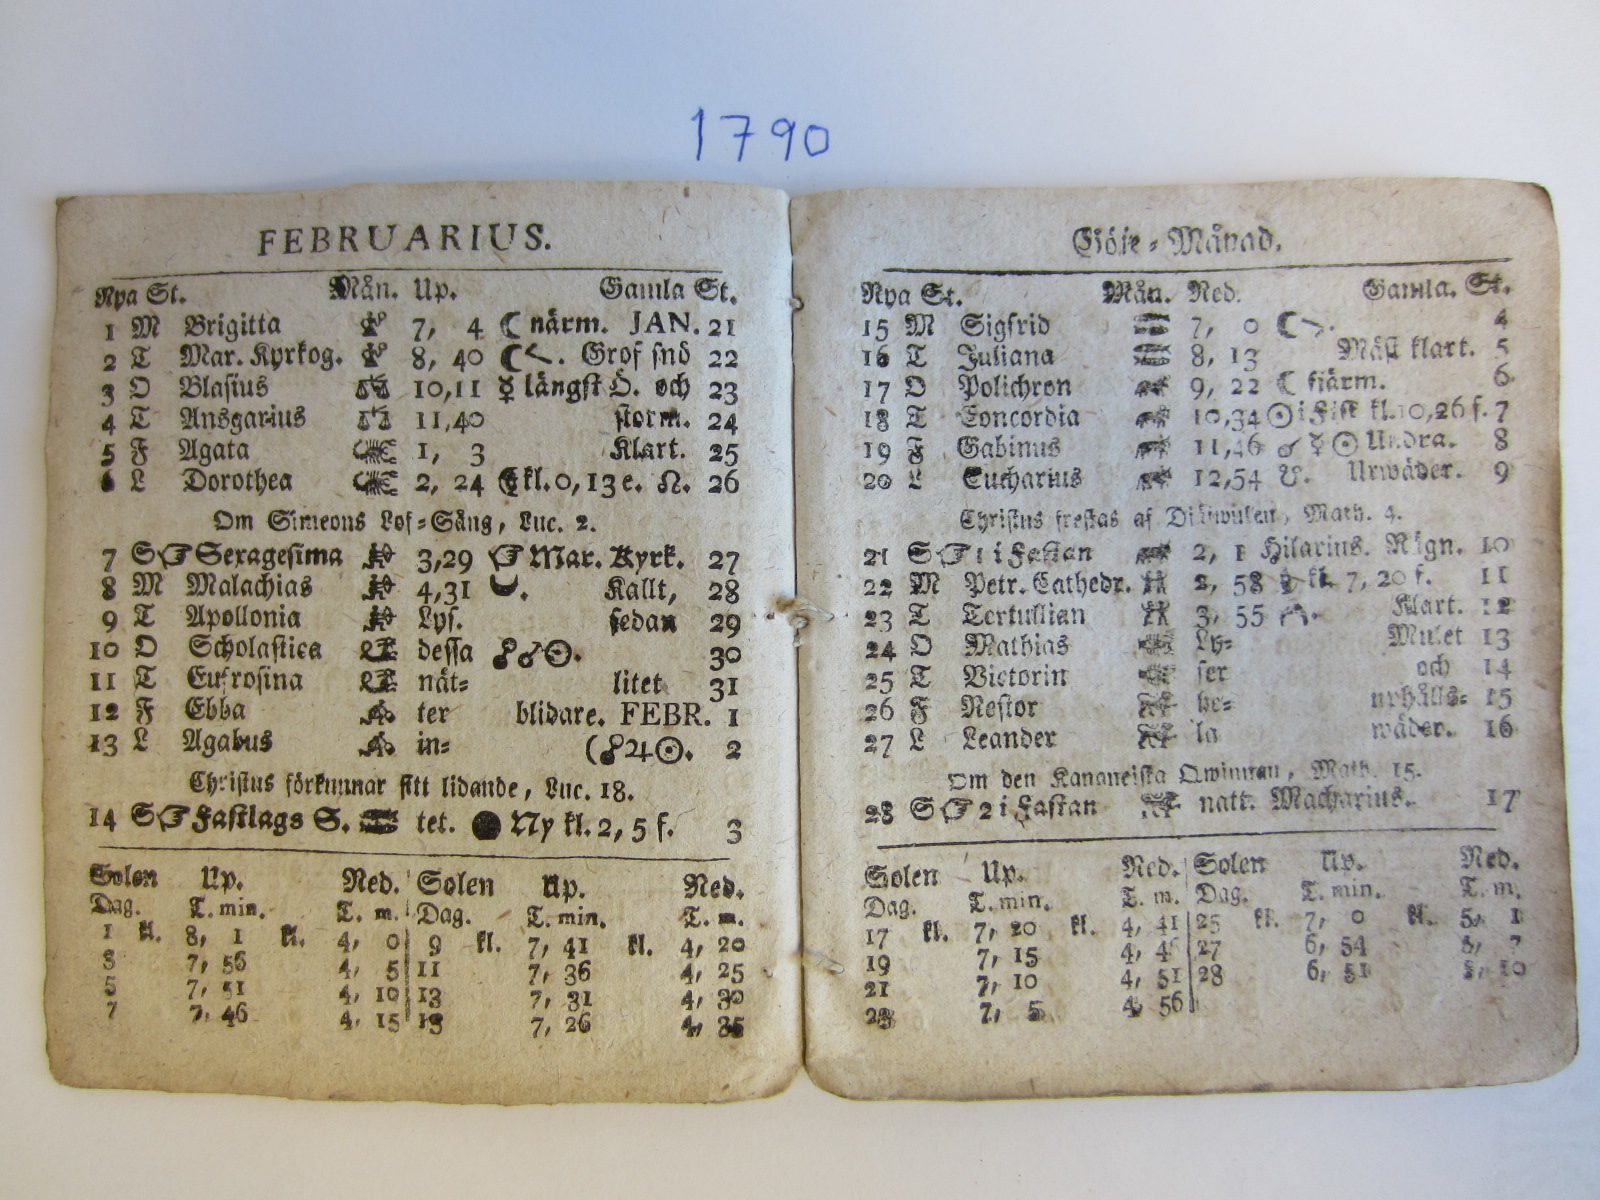 1790
FEBRUARIUS.
Nya St. Mån. Up. Gamla St.
1 M Brigitta 7, 4 ☾ närm. JAN. 21
2 T Mar. Kyrkog. 8, 40 ☾ Grof snö 22
3 O Blasius 10,11 ☿ längst Ö. och 23
4 T Ansgarius 11,40 storm. 24
5 F Agata 1, 3 Klart. 25
6 L Dorothea 2, 24 kl. 0, 13 e. ☊. 26
Om Simeons Lof-Sång, Luc. 2.
7 S ☞ Sexagesima 3,29 ☞ Mar. Kyrk. 27
8 M Malachias 4,31 Kallt, 28
9 T Apollonia Lys. sedan 29
10 O Scholastica dessa ☍♂☉. 30
11 T Eufrosina nät- litet 31
12 F Ebba ter blidare. FEBR. 1
13 L Agabus in- (☍♃☉. 2
Christus förkunnar sitt lidande, Luc. 18.
14 S ☞ Fastlags S. tet. ● Ny kl. 2, 5 f. 3
Solen Up. Ned. Solen Up. Ned.
Dag. T. min. T. m. Dag. T. min. T. m.
1 kl. 8, 1 kl. 4, 0 9 kl. 7, 41 kl. 4, 20
3 7, 56 4, 5 11 7, 36 4, 25
5 7, 51 4, 10 13 7, 31 4, 30
7 7, 46 4, 15 15 7, 26 4, 35
Göje-Månad.
Nya St. Mån. Ned. Gamla. St.
15 M Sigfrid 7, 0 ☾ 4
16 T Juliana 8, 13 Mäst klart. 5
17 O Polichron 9, 22 ☾ fjärm. 6
18 T Concordia 10,34 ☉ i Fisk kl. 10,26 f. 7
19 F Gabinus 11,46 ☌ ☿ ☉ Undra. 8
20 L Eucharius 12,54 ☋. Urwäder. 9
Christus frestas af Diefwulen, Math. 4.
21 S ☞ 1 i Fastan 2, 1 Hilarius. Rägn. 10
22 M Petr. Cathedr. 2, 58 kl. 7, 20 f. 11
23 T Tertullian 3, 55 Klart. 12
24 O Mathias Ly- Mulet 13
25 T Victorin ser och 14
26 F Nestor he- uphålls- 15
27 L Leander la wäder. 16
Om den Kananeiska Qwinnan, Math. 15.
28 S ☞ 2 i Fastan natt. Macharius. 17
Solen Up. Ned. Solen Up. Ned.
Dag. T. min. T. m. Dag. T. min. T. m.
17 kl. 7, 20 kl. 4, 41 25 kl. 7, 0 kl. 5, 1
19 7, 15 4, 46 27 6, 54 5, 7
21 7, 10 4, 51 28 6, 51 5, 10
23 7, 5 4, 56